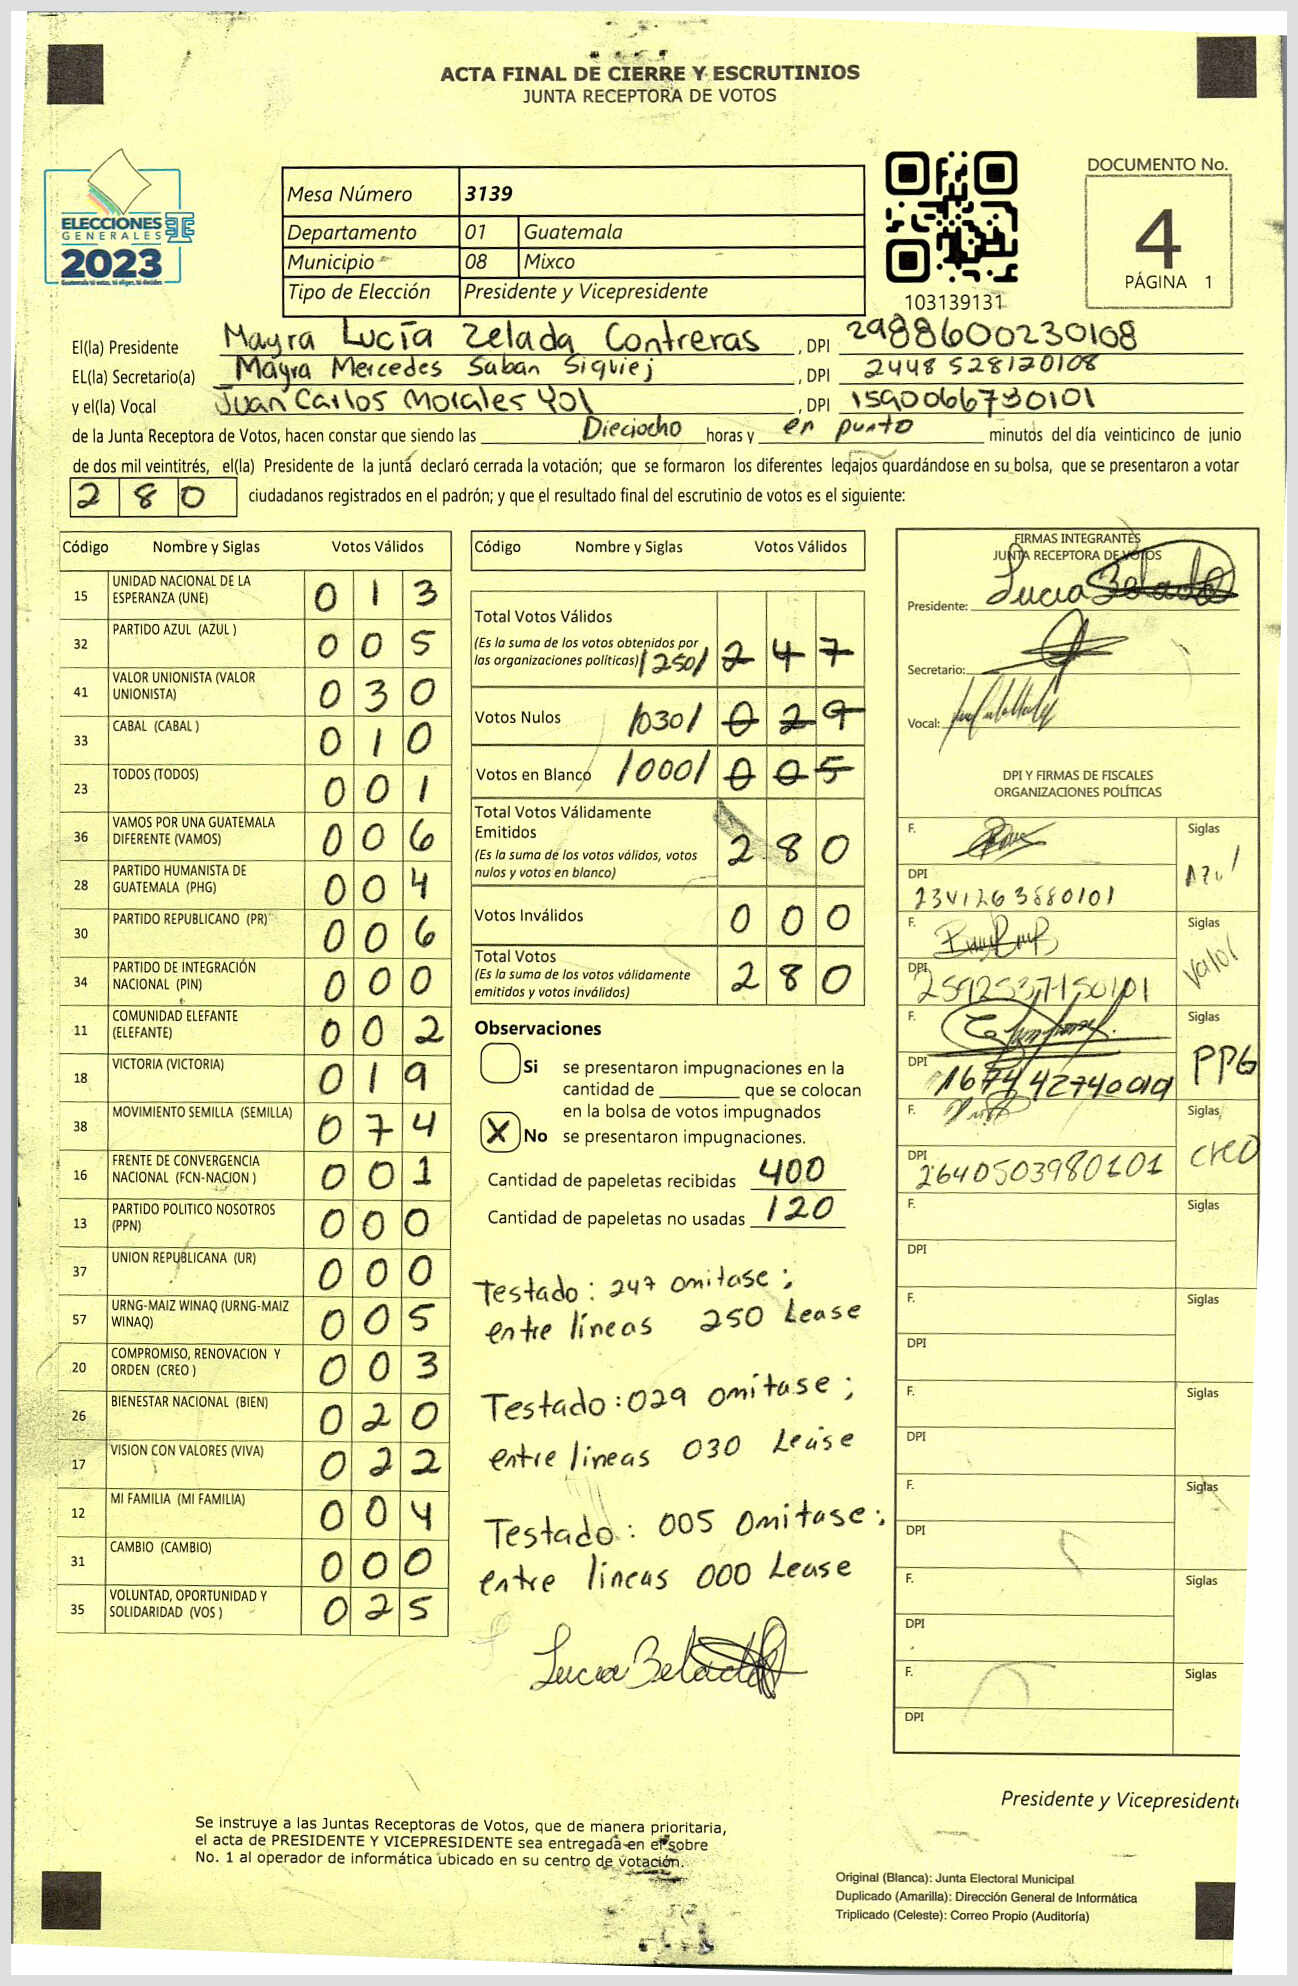 ACTA FINAL DE CIERRE Y ESCRUTINIOS
JUNTA RECEPTORA DE VOTOS
ELECCIONES
GENERALES
2023
Guatemala tú votas, tú eliges, tú decides
Mesa Número 3139
Departamento 01 Guatemala
Municipio 08 Mixco
Tipo de Elección Presidente y Vicepresidente
103139131
DOCUMENTO No.
4
PÁGINA 1
El(la) Presidente Mayra Lucía Zelada Contreras, DPI 2988600230108
EL(la) Secretario(a) Mayra Mercedes Saban Siquiej, DPI 2448 528120108
y el(la) Vocal Juan Carlos Morales Yol, DPI 1590066730101
de la Junta Receptora de Votos, hacen constar que siendo las Dieciocho horas y en punto minutos del día veinticinco de junio
de dos mil veintitrés, el(la) Presidente de la junta declaró cerrada la votación; que se formaron los diferentes legajos guardándose en su bolsa, que se presentaron a votar
280 ciudadanos registrados en el padrón; y que el resultado final del escrutinio de votos es el siguiente:
Código Nombre y Siglas Votos Válidos
15 UNIDAD NACIONAL DE LA ESPERANZA (UNE) 013
32 PARTIDO AZUL (AZUL ) 005
41 VALOR UNIONISTA (VALOR UNIONISTA) 030
33 CABAL (CABAL ) 010
23 TODOS (TODOS) 001
36 VAMOS POR UNA GUATEMALA DIFERENTE (VAMOS) 006
28 PARTIDO HUMANISTA DE GUATEMALA (PHG) 004
30 PARTIDO REPUBLICANO (PR) 006
34 PARTIDO DE INTEGRACIÓN NACIONAL (PIN) 000
11 COMUNIDAD ELEFANTE (ELEFANTE) 002
18 VICTORIA (VICTORIA) 019
38 MOVIMIENTO SEMILLA (SEMILLA) 074
16 FRENTE DE CONVERGENCIA NACIONAL (FCN-NACION ) 001
13 PARTIDO POLITICO NOSOTROS (PPN) 000
37 UNION REPUBLICANA (UR) 000
57 URNG-MAIZ WINAQ (URNG-MAIZ WINAQ) 005
20 COMPROMISO, RENOVACION Y ORDEN (CREO ) 003
26 BIENESTAR NACIONAL (BIEN) 020
17 VISION CON VALORES (VIVA) 022
12 MI FAMILIA (MI FAMILIA) 004
31 CAMBIO (CAMBIO) 000
35 VOLUNTAD, OPORTUNIDAD Y SOLIDARIDAD (VOS ) 025
Código Nombre y Siglas Votos Válidos
Total Votos Válidos
(Es la suma de los votos obtenidos por
las organizaciones políticas) /250/ 247
Votos Nulos /030/ 029
Votos en Blanco /000/ 005
Total Votos Válidamente
Emitidos
(Es la suma de los votos válidos, votos
nulos y votos en blanco) 280
Votos Inválidos 000
Total Votos
(Es la suma de los votos válidamente
emitidos y votos inválidos) 280
Observaciones
Si se presentaron impugnaciones en la
cantidad de ________ que se colocan
en la bolsa de votos impugnados
X No se presentaron impugnaciones.
Cantidad de papeletas recibidas 400
Cantidad de papeletas no usadas 120
Testado: 247 omitase;
entre líneas 250 Lease
Testado: 029 omitase;
entre lineas 030 Lease
Testado: 005 omitase;
entre lineas 000 Lease
FIRMAS INTEGRANTES
JUNTA RECEPTORA DE VOTOS
Presidente:
Secretario:
Vocal:
DPI Y FIRMAS DE FISCALES
ORGANIZACIONES POLÍTICAS
F. Siglas Azul
DPI
F. Siglas Valor
DPI 2592537150101
F. Siglas PPG
DPI
F. Siglas creo
DPI 2640503980101
F. Siglas
DPI
F. Siglas
DPI
F. Siglas
DPI
F. Siglas
DPI
F. Siglas
DPI
F. Siglas
DPI
Presidente y Vicepresidente
Se instruye a las Juntas Receptoras de Votos, que de manera prioritaria,
el acta de PRESIDENTE Y VICEPRESIDENTE sea entregada en el sobre
No. 1 al operador de informática ubicado en su centro de votación.
Original (Blanca): Junta Electoral Municipal
Duplicado (Amarilla): Dirección General de Informática
Triplicado (Celeste): Correo Propio (Auditoría)